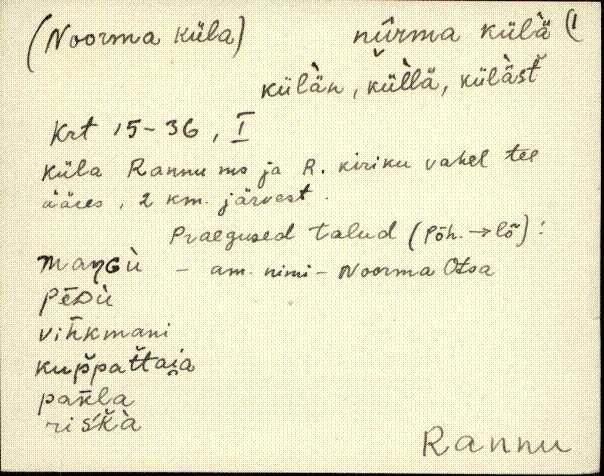 (Noorma küla) nūrma külà (1
külàn, küĺlä, külàšt
Krt 15-36, I
küla Rannu ms ja R. kiriku vahel tee
ääres, 2 km. järvest.
Praegused talud (Põh. → lõ):
maŋGù - am. nimi - Noorma Otsa
pēDù
vih̄kmani
kup̌pat̆taia
pak̄la
risḱà
Rannu